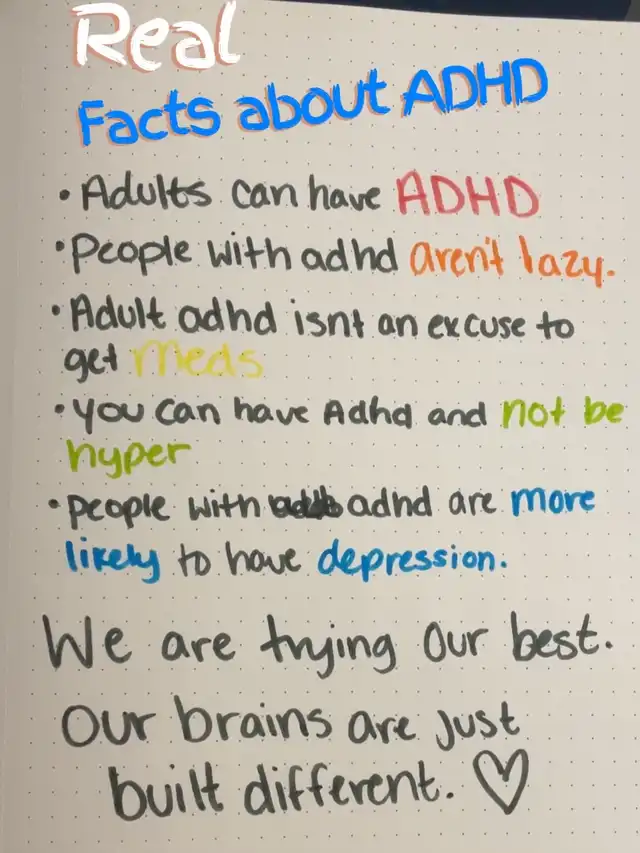 Real
Facts about ADHD
• Adults can have ADHD
• People with adhd aren't lazy.
• Adult adhd isnt an excuse to
get meds
• you can have Adhd and not be
hyper
• people with adhd are more
likely to have depression.
We are trying our best.
Our brains are just
built different. ♡